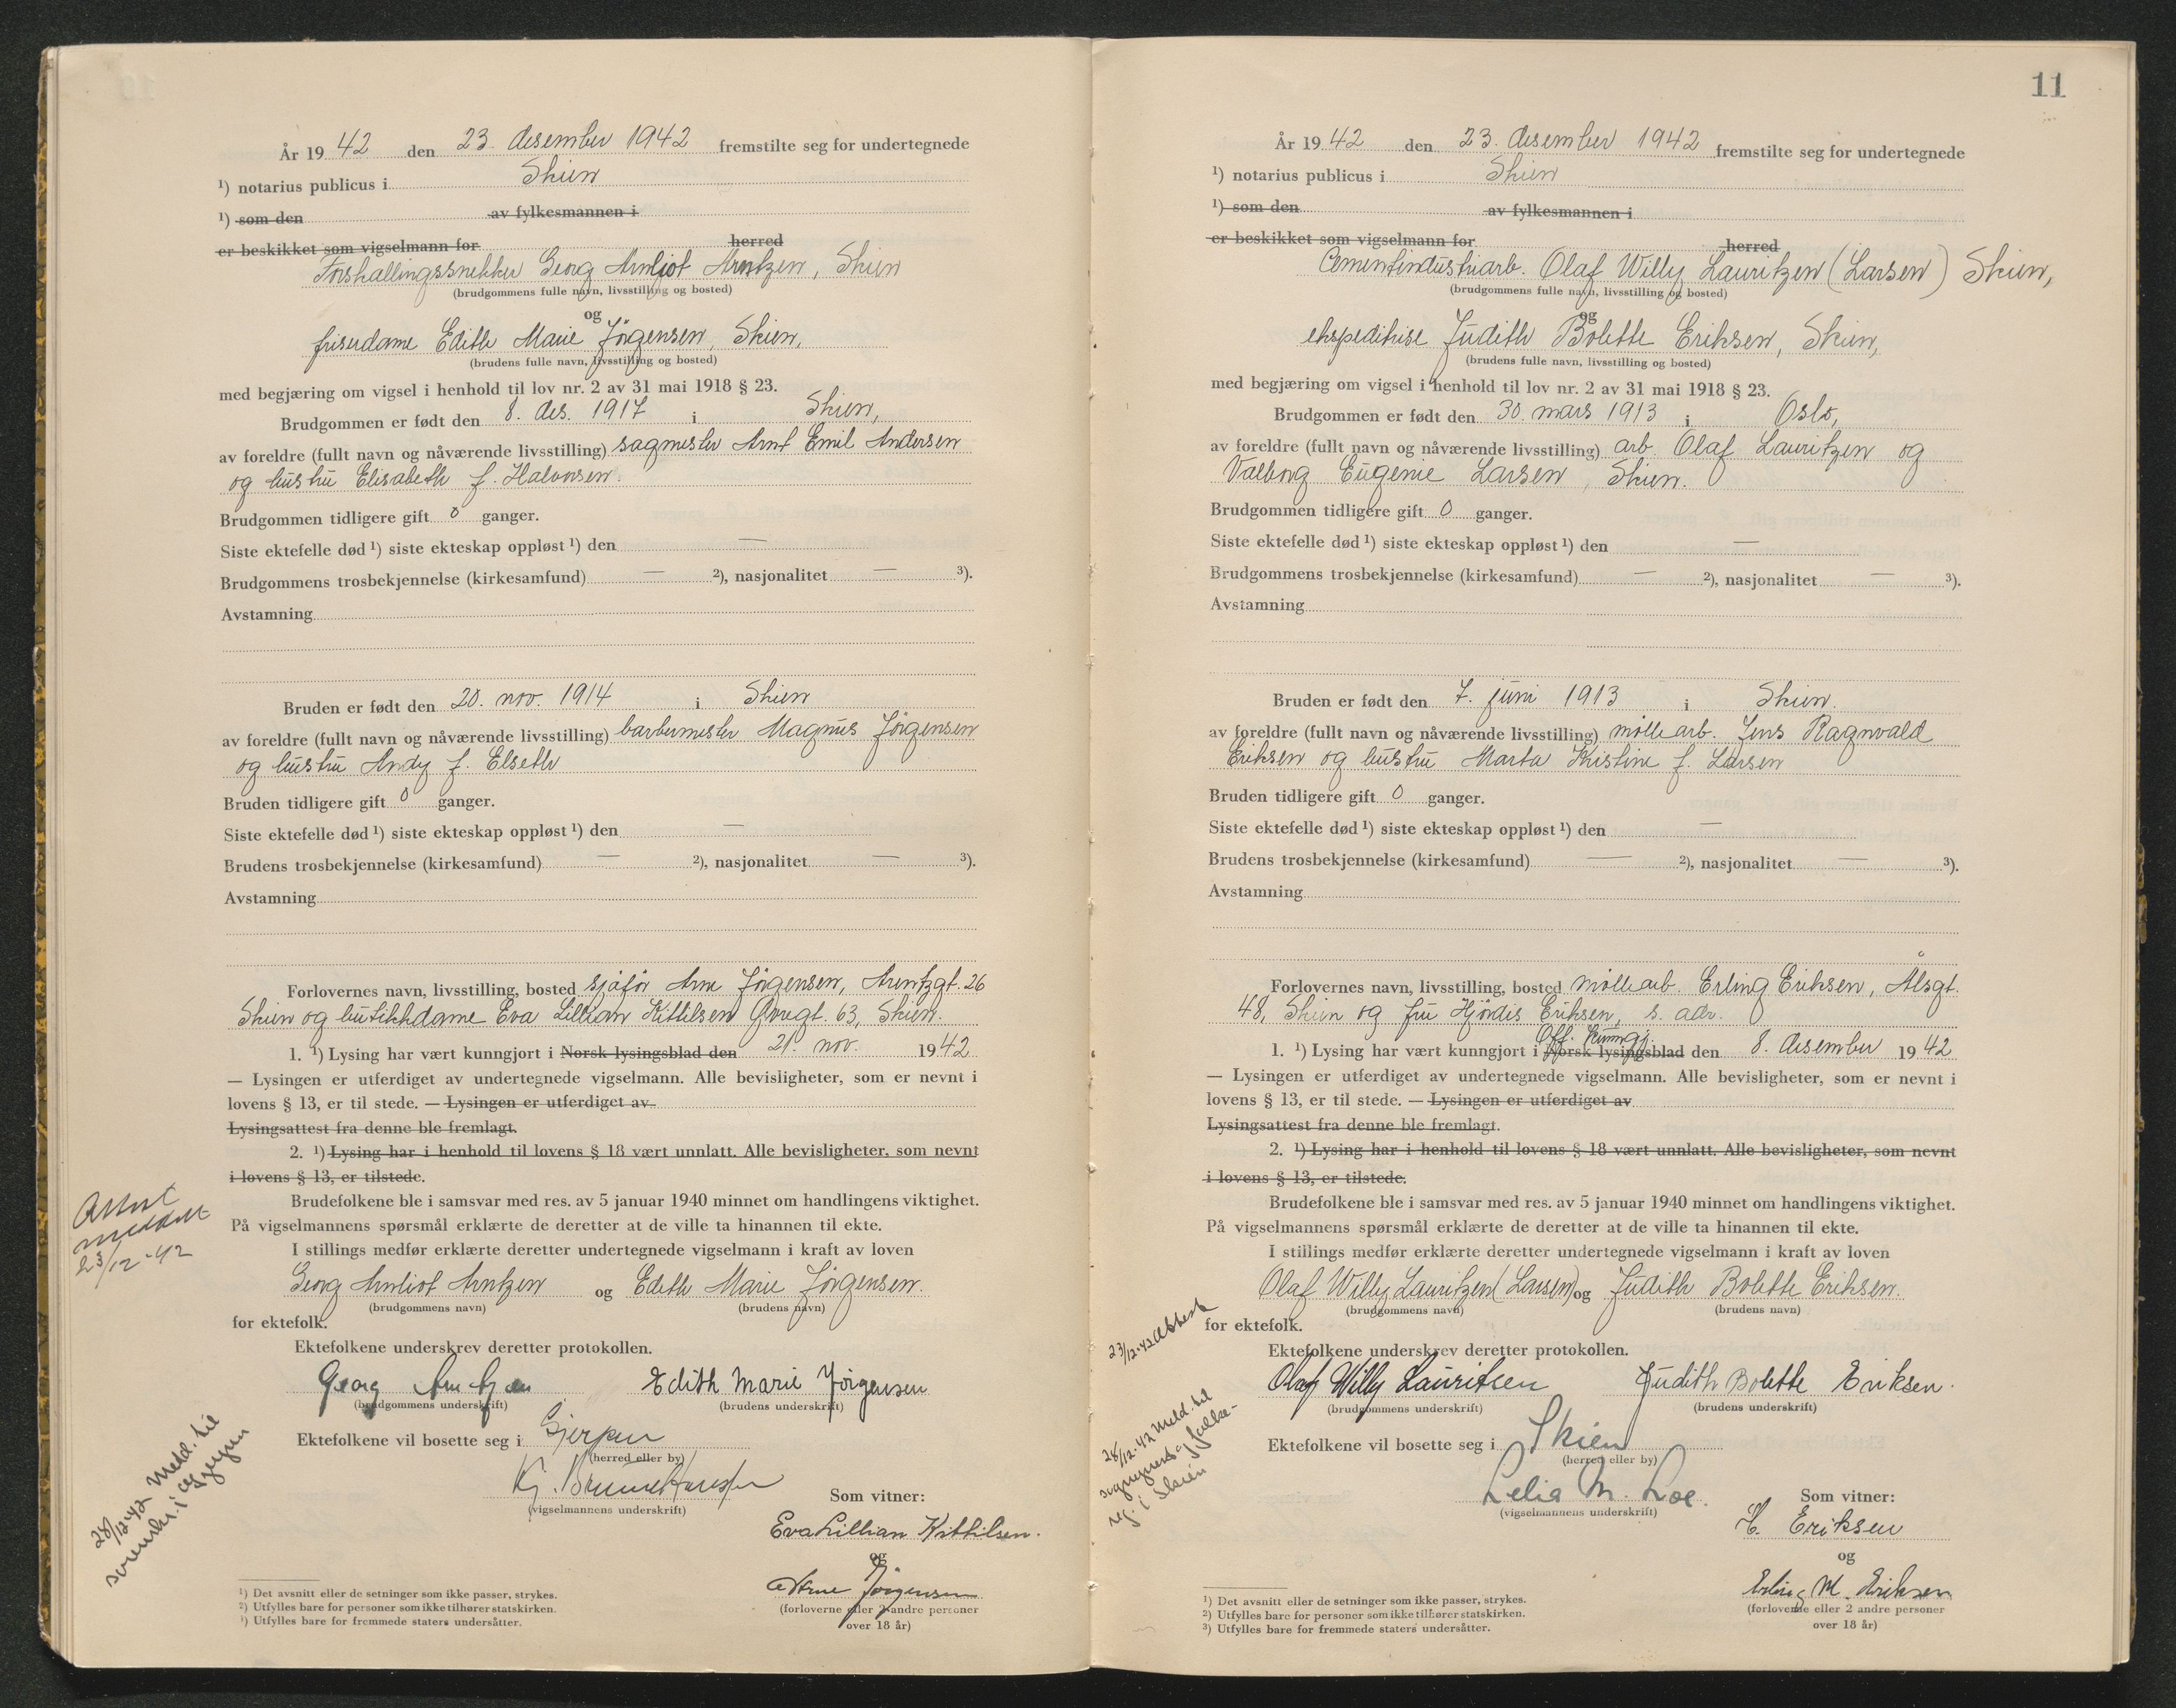 År 19 42 den 23. desember 1942 fremstilte seg for undertegnede
¹) notarius publicus i Skien
¹) som den av fylkesmannen i
er beskikket som vigselmann for herred
Forskallingssnekker Georg Arnljot Arntzen, Skien
(brudgommens fulle navn, livsstilling og bosted)
og
friserdame Edith Marie Jörgensen, Skien,
(brudens fulle navn, livsstilling og bosted)
med begjæring om vigsel i henhold til lov nr. 2 av 31 mai 1918 § 23.
Brudgommen er født den 8. des. 1917 i Skien,
av foreldre (fullt navn og nåværende livsstilling) sagmester Arnt Emil Andersen
og hustru Elisabeth f. Halvorsen.
Brudgommen tidligere gift 0 ganger.
Siste ektefelle død ¹) siste ekteskap oppløst ¹) den —
Brudgommens trosbekjennelse (kirkesamfund) — ²), nasjonalitet — ³).
Avstamning
Bruden er født den 20. nov. 1914 i Skien
av foreldre (fullt navn og nåværende livsstilling) barbermester Magnus Jörgensen
og hustru Andy f. Elseth
Bruden tidligere gift 0 ganger.
Siste ektefelle død ¹) siste ekteskap oppløst ¹) den —
Brudens trosbekjennelse (kirkesamfund) — ²), nasjonalitet — ³).
Avstamning
Forlovernes navn, livsstilling, bosted sjåför Arne Jörgensen, Arentzgt. 26
Skien og butikkdame Eva Lillian Kittilsen 63, Skien.
1. ¹) Lysing har vært kunngjort i Norsk lysingsblad den 21. nov. 19 42
— Lysingen er utferdiget av undertegnede vigselmann. Alle bevisligheter, som er nevnt i
lovens § 13, er til stede. — Lysingen er utferdiget av
Lysingsattest fra denne ble fremlagt.
2. ¹) Lysing har i henhold til lovens § 18 vært unnlatt. Alle bevisligheter, som nevnt
i lovens § 13, er tilstede.
Brudefolkene ble i samsvar med res. av 5 januar 1940 minnet om handlingens viktighet.
På vigselmannens spørsmål erklærte de deretter at de ville ta hinannen til ekte.
I stillings medfør erklærte deretter undertegnede vigselmann i kraft av loven
Georg Arnljot Arntzen og Edith Marie Jörgensen.
(brudgommens navn) (brudens navn)
for ektefolk.
Ektefolkene underskrev deretter protokollen.
Georg Arntzen Edith Marie Jörgensen
(brudgommens underskrift) (brudens underskrift)
Ektefolkene vil bosette seg i Gjerpen
(herred eller by)
(vigselmannens underskrift)
Som vitner:
Eva Lillian Kittilsen.
og
Arne Jörgensen
(forloverne eller 2 andre personer
over 18 år)
¹) Det avsnitt eller de setninger som ikke passer, strykes.
²) Utfylles bare for personer som ikke tilhører statskirken.
³) Utfylles bare for fremmede staters undersåtter.
Attest
meddelt
23/12-42
28/12-42 Meld. til
11
År 19 42 den 23. desember 1942 fremstilte seg for undertegnede
¹) notarius publicus i Skien
¹) som den av fylkesmannen i
er beskikket som vigselmann for herred
Cementindustriarb. Olaf Willy Lauritzen (Larsen) Skien,
(brudgommens fulle navn, livsstilling og bosted)
og
ekspeditrise Judith Bolette Eriksen, Skien,
(brudens fulle navn, livsstilling og bosted)
med begjæring om vigsel i henhold til lov nr. 2 av 31 mai 1918 § 23.
Brudgommen er født den 30. mars 1913 i Oslo,
av foreldre (fullt navn og nåværende livsstilling) arb. Olaf Lauritzen og
Valborg Eugenie Larsen, Skien.
Brudgommen tidligere gift 0 ganger.
Siste ektefelle død ¹) siste ekteskap oppløst ¹) den —
Brudgommens trosbekjennelse (kirkesamfund) — ²), nasjonalitet — ³).
Avstamning
Bruden er født den 7. juni 1913 i Skien.
av foreldre (fullt navn og nåværende livsstilling) möllearb. Jens Ragnvald
Eriksen og hustru Marta Kristine f. Larsen
Bruden tidligere gift 0 ganger.
Siste ektefelle død ¹) siste ekteskap oppløst ¹) den —
Brudens trosbekjennelse (kirkesamfund) — ²), nasjonalitet — ³).
Avstamning
Forlovernes navn, livsstilling, bosted möllearb. Erling Eriksen, Ålsgt.
48, Skien og fru Hjördis Eriksen, s. adr.
Off. Kunngj.
1. ¹) Lysing har vært kunngjort i Norsk lysingsblad den 8. desember 19 42
— Lysingen er utferdiget av undertegnede vigselmann. Alle bevisligheter, som er nevnt i
lovens § 13, er til stede. — Lysingen er utferdiget av
Lysingsattest fra denne ble fremlagt.
2. ¹) Lysing har i henhold til lovens § 18 vært unnlatt. Alle bevisligheter, som nevnt
i lovens § 13, er tilstede.
Brudefolkene ble i samsvar med res. av 5 januar 1940 minnet om handlingens viktighet.
På vigselmannens spørsmål erklærte de deretter at de ville ta hinannen til ekte.
I stillings medfør erklærte deretter undertegnede vigselmann i kraft av loven
Olaf Willy Lauritzen (Larsen) og Judith Bolette Eriksen.
(brudgommens navn) (brudens navn)
for ektefolk.
Ektefolkene underskrev deretter protokollen.
Olaf Willy Lauritsen Judith Bolette Eriksen.
(brudgommens underskrift) (brudens underskrift)
Ektefolkene vil bosette seg i Skien
(herred eller by)
Lelia M. Loe.
(vigselmannens underskrift)
Som vitner:
H. Eriksen
og
Erling M. Eriksen
(forloverne eller 2 andre personer
over 18 år)
¹) Det avsnitt eller de setninger som ikke passer, strykes.
²) Utfylles bare for personer som ikke tilhører statskirken.
³) Utfylles bare for fremmede staters undersåtter.
23/12-42 Attest
28/12-42 Meld. til
sogneprest og folke-
reg. i Skien